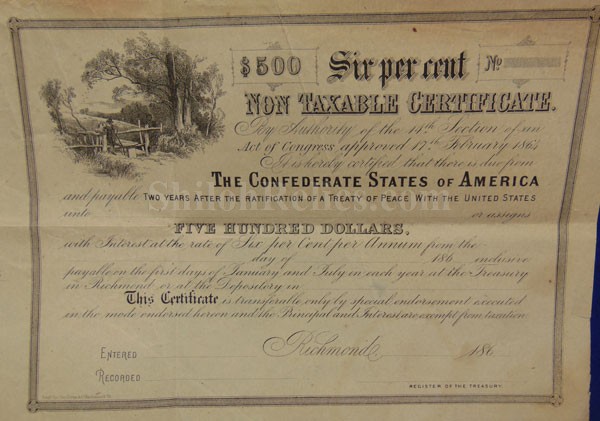 $500 Six per cent No
NON TAXABLE CERTIFICATE.
By Authority of the 14th Section of an
Act of Congress approved 17th February 1864
It is hereby certified that there is due from
THE CONFEDERATE STATES OF AMERICA
and payable TWO YEARS AFTER THE RATIFICATION OF A TREATY OF PEACE WITH THE UNITED STATES
unto or assigns
FIVE HUNDRED DOLLARS,
with Interest at the rate of Six per Cent per Annum from the
day of 186 inclusive
payable on the first days of January and July in each year at the Treasury
in Richmond or at the Depository in
This Certificate is transferable only by special endorsement executed
in the mode endorsed hereon and the Principal and Interest are exempt from taxation.
Richmond 186
ENTERED
RECORDED
REGISTER OF THE TREASURY.